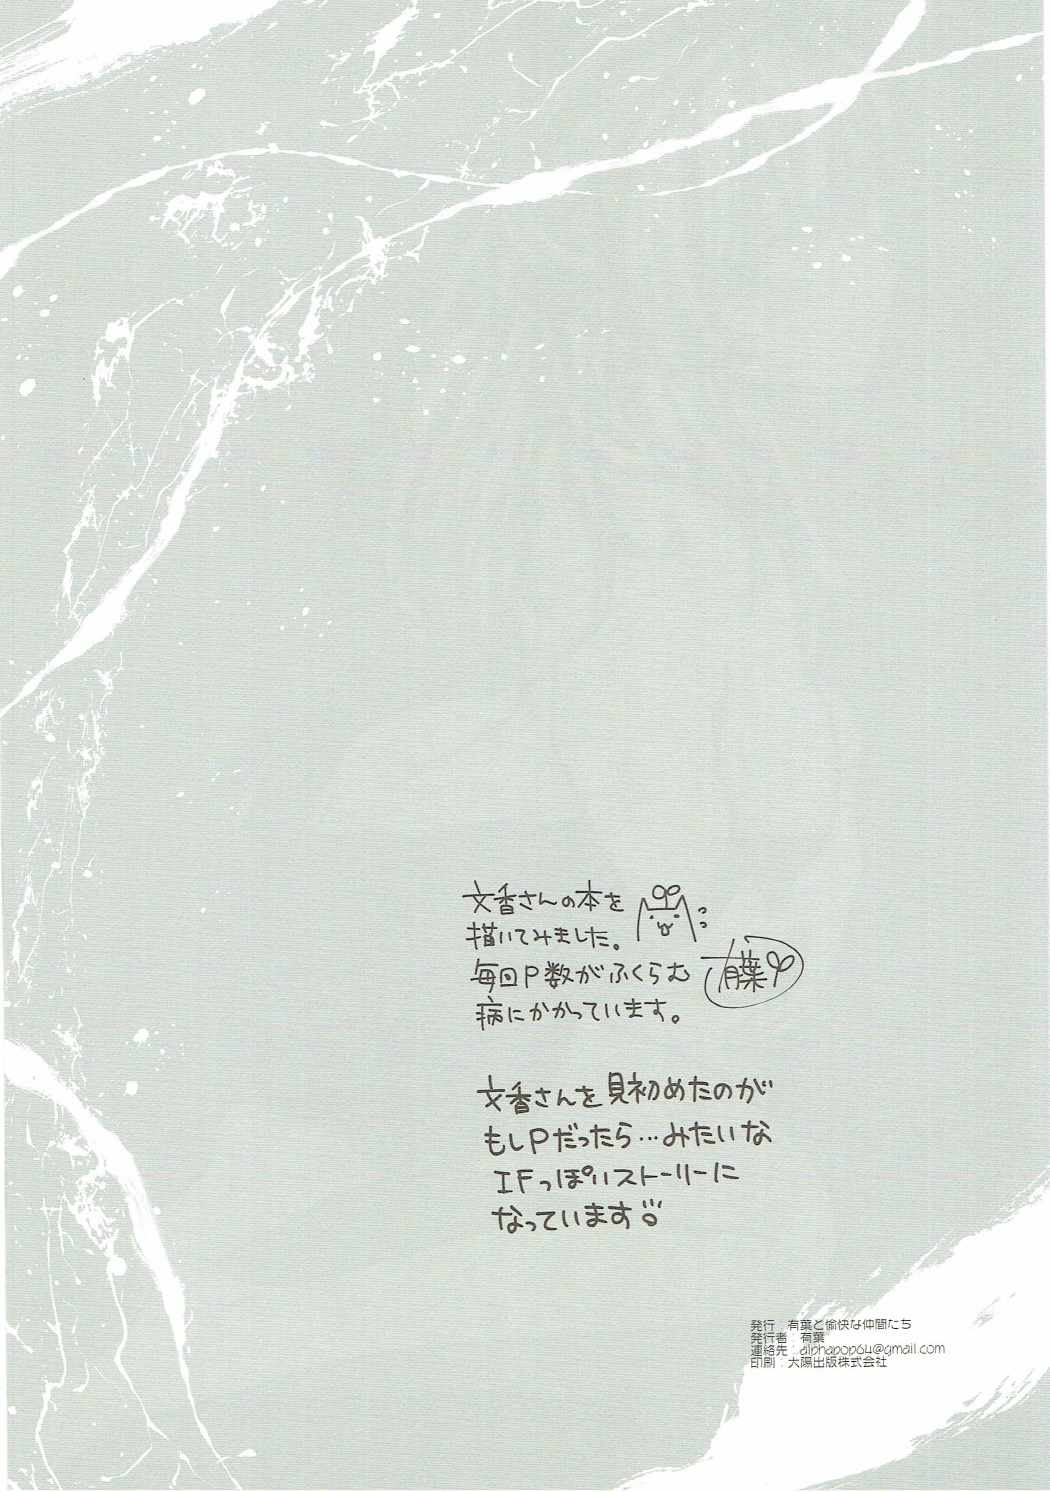 文香さんの本を
描いてみました。
毎回P数がふくらむ
病にかかっています。
有葉
文香さんを見初めたのが
もしPだったら…みたいな
IFっぽいストーリーに
なっています
発行：有葉と愉快な仲間たち
発行者：有葉
連絡先：alphapop64@gmail.com
印刷：大陽出版株式会社